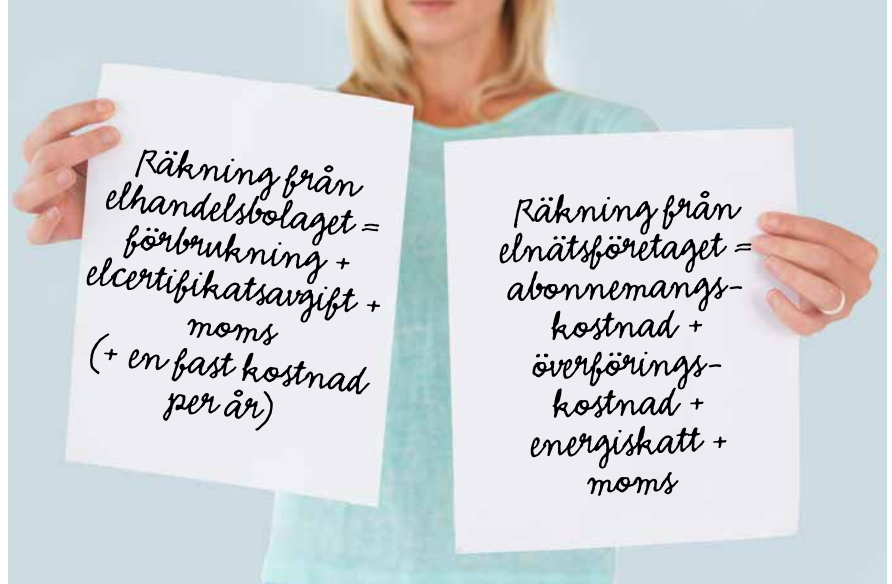 Räkning från
elhandelsbolaget =
förbrukning +
elcertifikatsavgift +
moms
(+ en fast kostnad
per år)
Räkning från
elnätsföretaget =
abonnemangs-
kostnad +
överförings-
kostnad +
energiskatt +
moms